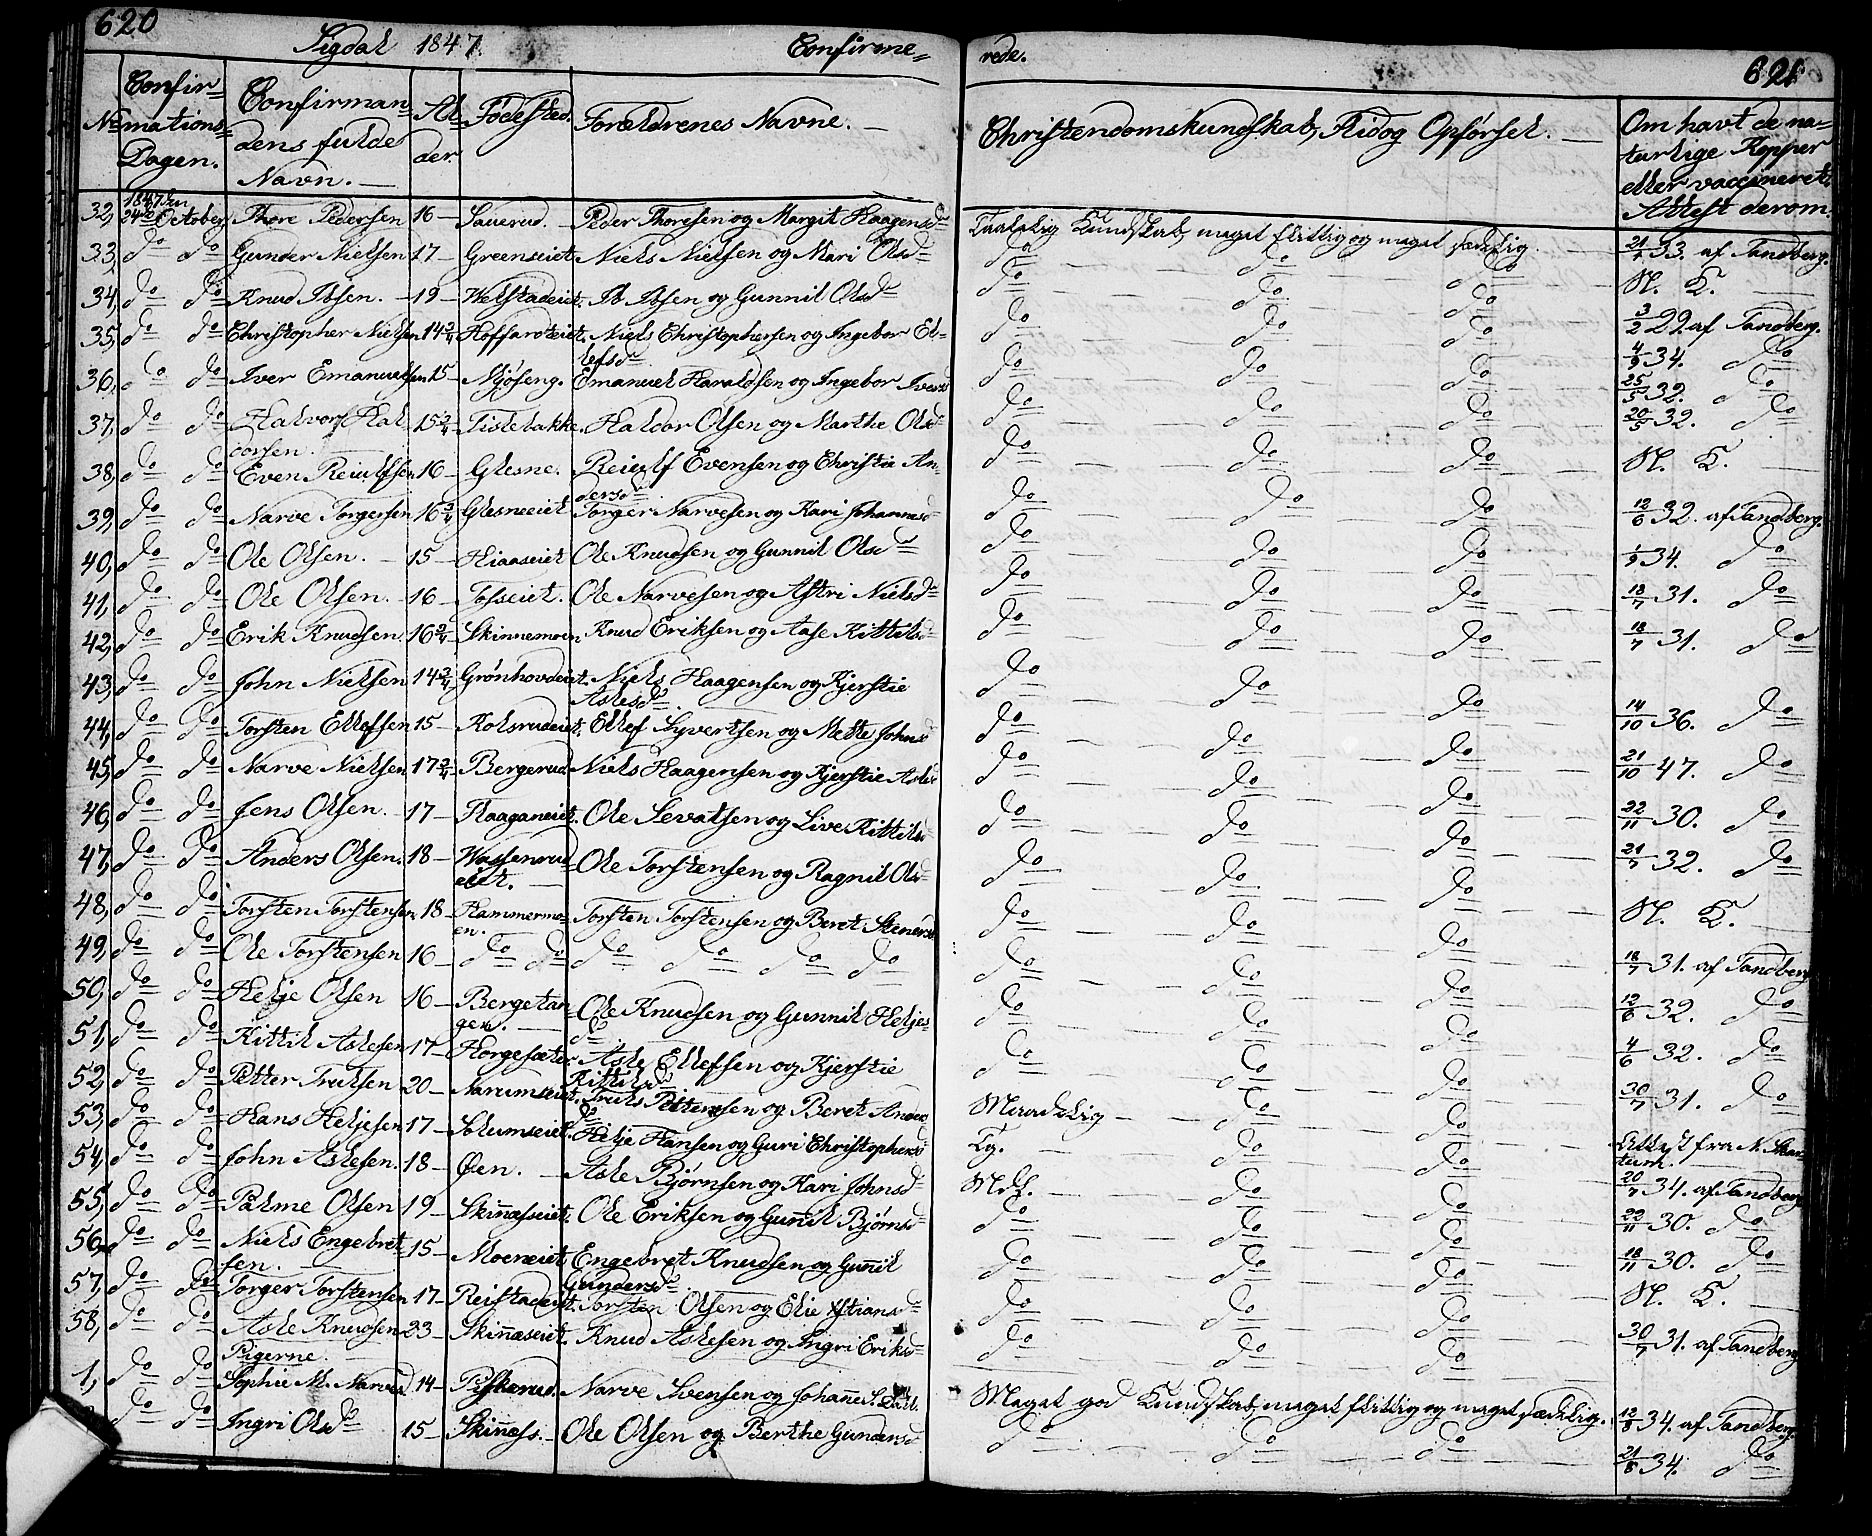 620
Sigdal 1847. Confirme=
rede.
621
No Confir=mations=Dagen. Confirmandens fulde Navn. — Alder. Fødested. Forældrenes Navne. — Christendomskundskab, Flid og Opførsel. — Om havt de naturlige Kopper eller vaccineret, Attest derom.
32, 1847 den 24de October Thore Pedersen 16 — Sauerud. Peder Thoresen og Margit Haagensdr Taalelig Kundskab, meget flittig og meget sædelig. 21/1 33. af Tandberg.
33, do do Gunder Nielsen 17 — Greenseiet Niels Nielsen og Mari Olsdr do do do N. K.
34, do do Knud Ibsen. — 19 — Welstadeiet. Ib Ibsen og Gunnil Olsdr do do do 3/2 29. af Tandberg.
35, do do Christopher Nielsen 14 3/4 Hoffarteiet. Niels Christophersen og Ingebor El-
lefsdr do do do 4/9 34. do
36, do do Iver Emanuelsen 15 — Mjøseng. Emanuel Haraldsen og Ingebor Iversd do do do 25/5 32. do
37, do do Halvor Hal-
dorsen. 15 3/4 Tislebakke. Haldor Olsen og Marthe Olsdr do do do 20/5 32. do
38, do do Even Reiulfsen 16 — Glesne. Reiulf Evensen og Christie An-
dersdr do do do N. K.
39, do do Narve Torgersen 16 3/4 Glesneeiet Torger Narvesen og Kari Johannesd do do do 12/6 32. af Tandberg.
40, do do Ole Olsen. — 15 — Hiaaseiet Ole Knudsen og Gunnil Olsdr do do do 1/9 34. do
41, do do Ole Olsen. — 16 — Tofseiet. Ole Narvesen og Astri Nielsdr do do do 18/7 31. do
42, do do Erik Knudsen. 16 3/4 Skinnemoen. Knud Eriksen og Aase Kittelsdr do do do 18/7 31. do
43, do do John Nielsen 14 3/4 Grønhovdeiet. Niels Haagensen og Kjerstie
Aslesdr. do do do 14/10 36. do
44, do do Torsten Ellefsen 15 — Kolsrudeiet. Ellef Syvertsen og Mette Johnsd do do do 21/10 47. do
45, do do Narve Nielsen 17 3/4 Bergerud Niels Haagensen og Kjerstie Aslesd do do do 22/11 30. do
46, do do Jens Olsen. — 17 — Haaganeiet. Ole Sevatsen og Live Kittilsd do do do 21/7 32. do
47, do do Anders Olsen. 18 — Wassenrud-
eiet. Ole Torstensen og Ragnil Olsdr do do do N. K.
48, do do Torsten Torstensen 18 — Hammermo-
en. Torsten Torstensen og Beret Stenersd do do do 18/7 31. af Tandberg
49, do do Ole Torstensen 16 — do do do do do do do do do 12/6 32. do
50, do do Helje Olsen 16 — Bergetan-
gen. Ole Knudsen og Gunnil Heljes-
dr do do do 4/6 32. do
51, do do Kittil Aslesen 17 — Horgesæter. Asle Ellefsen og Kjerstie
Kittilsdr do do do 30/7 31. do
52, do do Petter Trulsen 20 — Narumseiet. Truls Pettersen og Beret Anders
dr Maadelig do do Attest fra N. Skar-
tum.
53, do do Hans Heljesen 17 — Solumseiet. Helje Hansen og Guri Christophersd Tg. do do 20/7 34. af Tandberg
54, do do John Aslesen. 18 — Øen. — Asle Bjørnsen og Kari Johnsdr Mdl. do do 22/11 30. do
55, do do Palme Olsen 19 — Skinnæsseiet. Ole Eriksen og Gunnil Bjørnsdr do do do 18/11 30. do
56, do do Niels Engebret-
sen. 15 — Moeneiet. Engebret Knudsen og Gunnil
Gundersdr do do do N. K.
57, do do Torger Torstensen 17 — Reistadeiet. Torsten Olsen og Elie Xstiansdr do do do 30/7 31. af Tandberg
58, do do Asle Knudsen 23 — Skinnæseiet. Knud Aslesen og Ingri Eriksd do do do
Pigerne.
1, do do Sophie M. Narvesd 14 — Piskerud. Narve Svensen og Johanne S. Meget god Kundskab, meget flittig og meget sædelig. 12/8 34. af Tandberg
do do Ingri Olsdr 15 — Skinnæss. — Ole Olsen og Berthe Gundersdr do do do 21/8 34. do